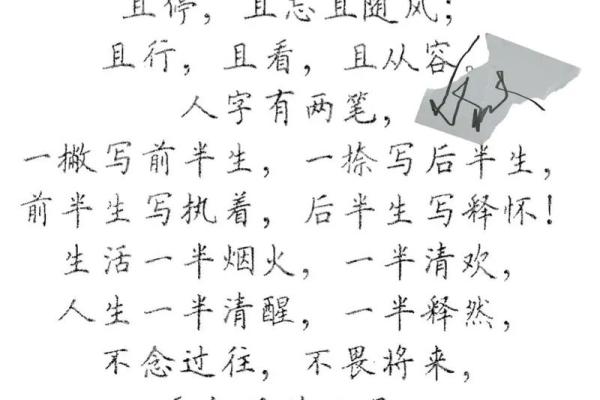 且停，且忘且随风；
且行，且看，且从容。
人字有两笔，
一撇写前半生，一捺写后半生，
前半生写执着，后半生写释怀！
生活一半烟火，一半清欢，
人生一半清醒，一半释然，
不念过往，不畏将来，